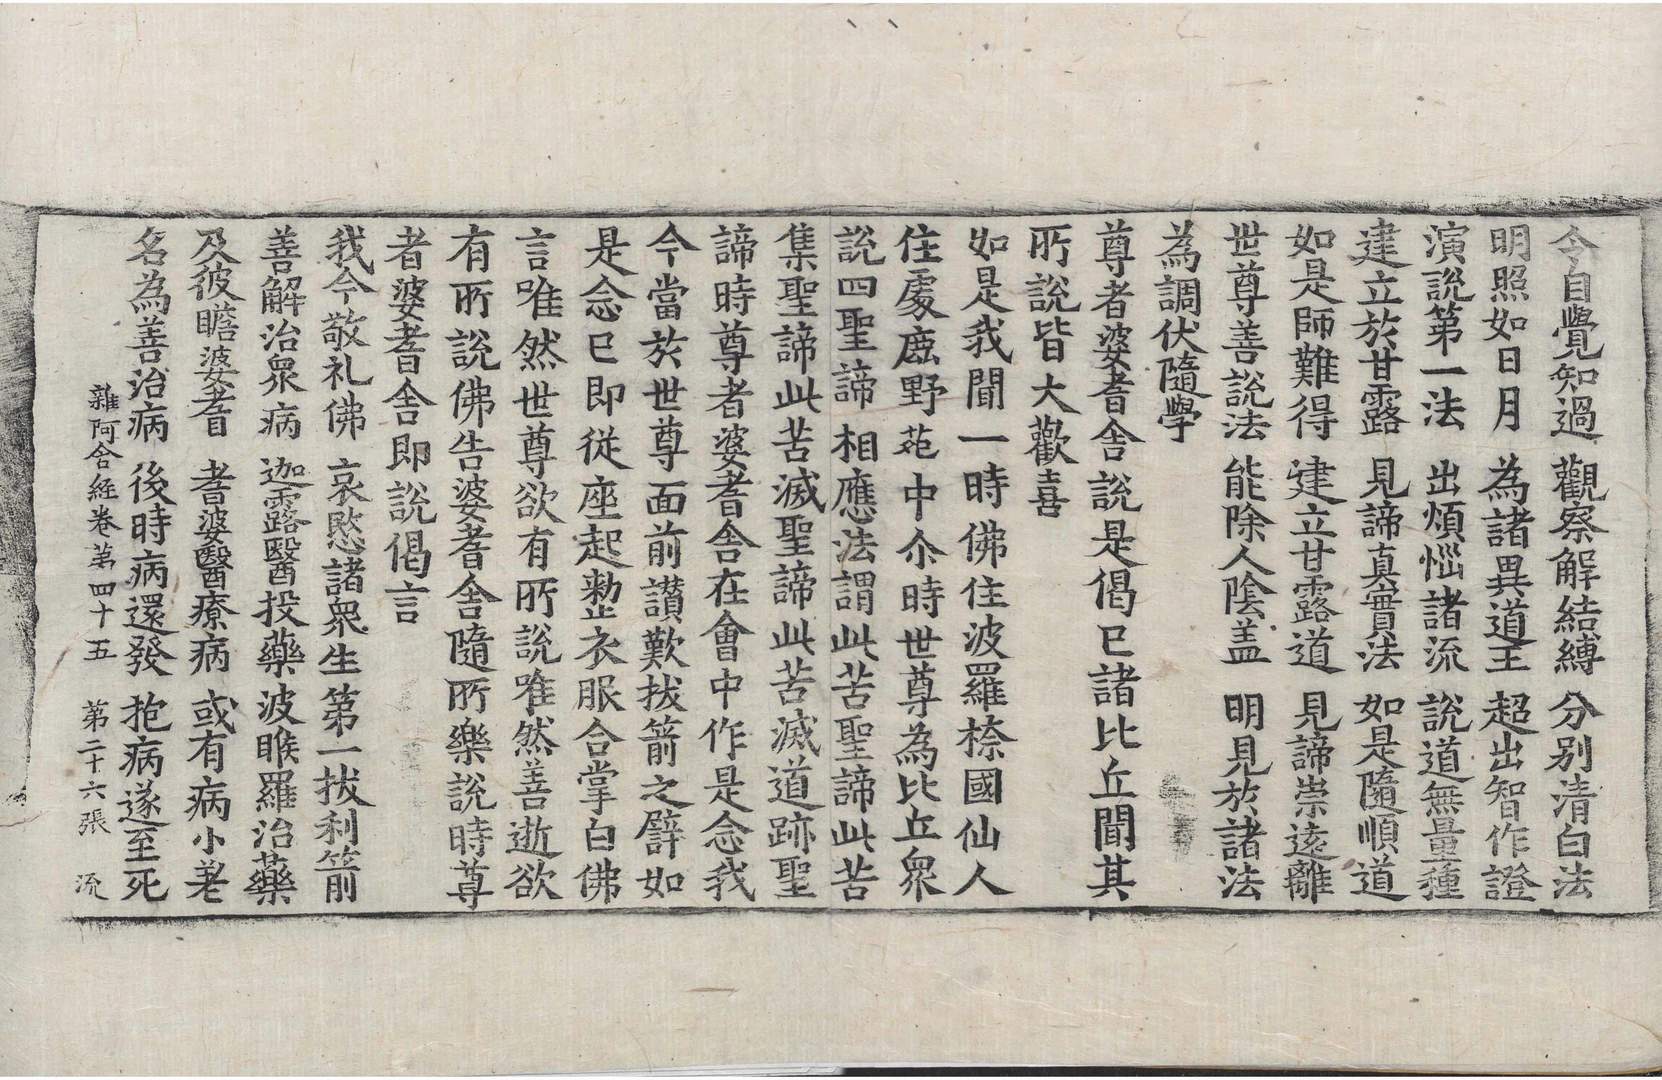 令自覺知過 觀察解結縛 分別清白法
明照如日月 為諸異道王 超出智作證
演說第一法 出煩惱諸流 說道無量種
建立於甘露 見諦真實法 如是隨順道
如是師難得 建立甘露道 見諦崇遠離
世尊善說法 能除人陰盖 明見於諸法
為調伏隨學
尊者婆耆舍說是偈已諸比丘聞其
所說皆大歡喜
如是我聞一時佛住波羅㮈國仙人
住處鹿野苑中尒時世尊為比丘眾
說四聖諦相應法謂此苦聖諦此苦
集聖諦此苦滅聖諦此苦滅道跡聖
諦時尊者婆耆舍在會中作是念我
今當於世尊面前讃歎拔箭之譬如
是念已即從座起整衣服合掌白佛
言唯然世尊欲有所說唯然善逝欲
有所說佛告婆耆舍隨所樂說時尊
者婆耆舍即說偈言
我今敬礼佛 哀愍諸眾生 第一拔利箭
善解治眾病 迦露醫投藥 波睺羅治藥
及彼瞻婆耆 耆婆醫療病 或有病小差
名為善治病 後時病還發 抱病遂至死
雜阿含経卷第四十五 第二十六張 流